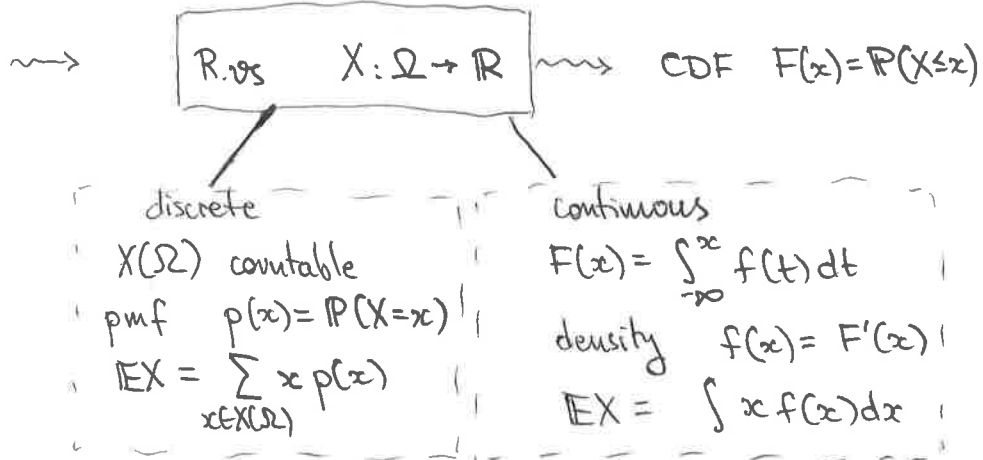 R.vs X: Ω → ℝ ⇝ CDF F(x)=ℙ(X≤x)
discrete
X(Ω) countable
pmf p(x)=ℙ(X=x)
𝔼X = ∑ x p(x)
x∈X(Ω)
continuous
F(x) = ∫_{-∞}^{x} f(t) dt
density f(x) = F'(x)
𝔼X = ∫ x f(x) dx